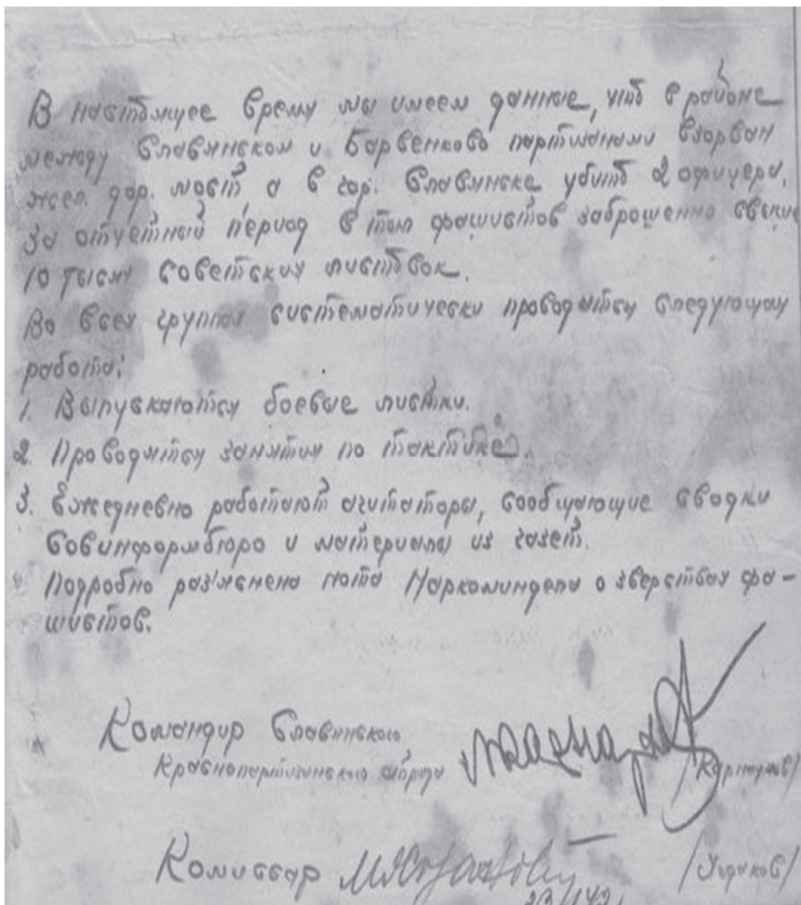 В настоящее время мы имеем данные, что в районе
между Славянском и Барвенково партизанами взорван
жел. дор. мост, а в гор. Славянске убито 2 офицера.
За отчетный период в тыл фашистов заброшенно свыше
10 тысяч советских листовок.
Во всех группах систематически проводится следующая
работа:
1. Выпускаются боевые листки.
2. Проводятся занятия по тактике.
3. Ежедневно работают агитаторы, сообщающие сводки
Совинформбюро и материалы из газет.
Подробно раз'яснена нота Наркоминдела о зверствах фа-
шистов.
Командир Славянского
Краснопартизанского отряда
Комиссар